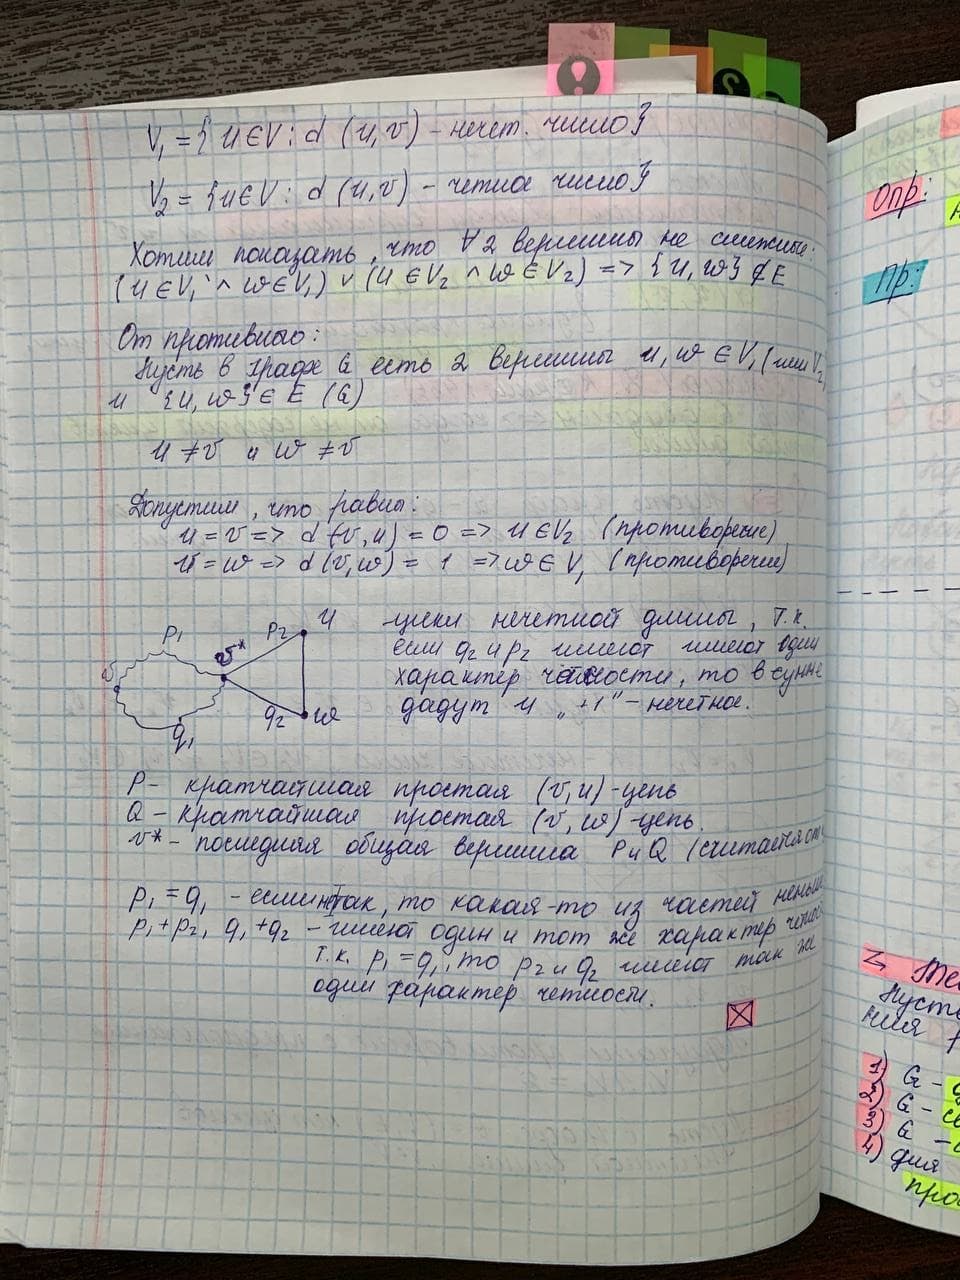 V₁ = { u ∈ V : d (u, v) - нечет. число}
V₂ = {u ∈ V : d (u, v) - четное число}
Хотим показать, что ∀ 2 вершины не смежные:
(u ∈ V₁ ∧ w ∈ V₁) ∨ (u ∈ V₂ ∧ w ∈ V₂) => {u, w} ∉ E
От противного:
Пусть в графе G есть 2 вершины u, w ∈ V₁ (или V₂)
и {u, w} ∈ E (G)
u ≠ v и w ≠ v
Допустим, что равны:
u = v => d (v, u) = 0 => u ∈ V₂ (противоречие)
u = w => d (v, w) = 1 => w ∈ V₁ (противоречие)
p₁
p₂
u
v*
v
q₂
w
q₁
цикл нечетной длины, т.к.
если q₂ и p₂ имеют имеют один
характер четности, то в сумме
дадут и „+1" - нечетное.
P - кратчайшая простая (v, u) - цепь
Q - кратчайшая простая (v, w) - цепь.
v* - последняя общая вершина P и Q (считается от
p₁ = q₁ - если не так, то какая-то из частей
p₁ + p₂, q₁ + q₂ - имеют один и тот же характер
т.к. p₁ = q₁, то p₂ и q₂ имеют так же
один характер четности.
Опр:
Пр:
Пусть
1) G -
2) G -
3) G -
4) для